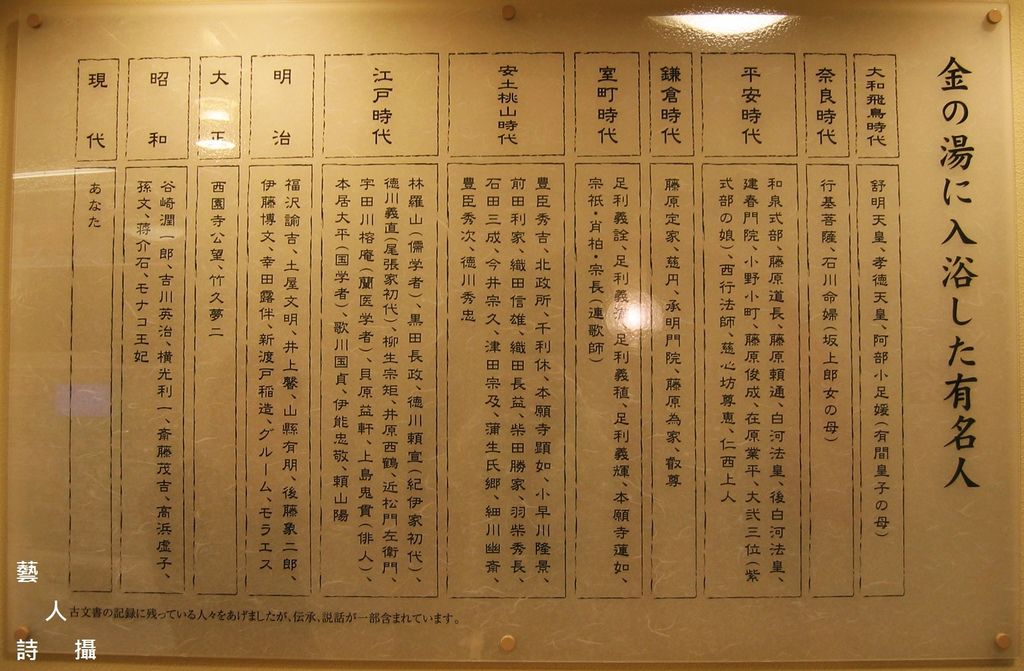 金の湯に入浴した有名人
大和飛鳥時代
舒明天皇、孝徳天皇、阿部小足媛(有間皇子の母)
奈良時代
行基菩薩、石川命婦(坂上郎女の母)
平安時代
和泉式部、藤原道長、藤原頼通、白河法皇、後白河法皇、
建春門院、小野小町、藤原俊成、在原業平、大弐三位(紫
式部の娘)、西行法師、慈心坊尊恵、仁西上人
鎌倉時代
藤原定家、慈円、承明門院、藤原為家、叡尊
室町時代
足利義詮、足利義満、足利義稙、足利義輝、本願寺蓮如、
宗祇・肖柏・宗長(連歌師)
安土桃山時代
豊臣秀吉、北政所、千利休、本願寺顕如、小早川隆景、
前田利家、織田信雄、織田長益、柴田勝家、羽柴秀長、
石田三成、今井宗久、津田宗及、蒲生氏郷、細川幽斎、
豊臣秀次、徳川秀忠
江戸時代
林羅山(儒学者)、黒田長政、徳川頼宣(紀伊家初代)、
徳川義直(尾張家初代)、柳生宗矩、井原西鶴、近松門左衛門、
宇田川榕庵(蘭医学者)、貝原益軒、上島鬼貫(俳人)、
本居大平(国学者)、歌川国貞、伊能忠敬、頼山陽
明治
福沢諭吉、土屋文明、井上馨、山縣有朋、後藤象二郎、
伊藤博文、幸田露伴、新渡戸稲造、グルーム、モラエス
大正
西園寺公望、竹久夢二
昭和
谷崎潤一郎、吉川英治、横光利一、斎藤茂吉、高浜虚子、
孫文、蒋介石、モナコ王妃
現代
あなた
古文書の記録に残っている人々をあげましたが、伝承、説話が一部含まれています。
藝
人
詩 攝